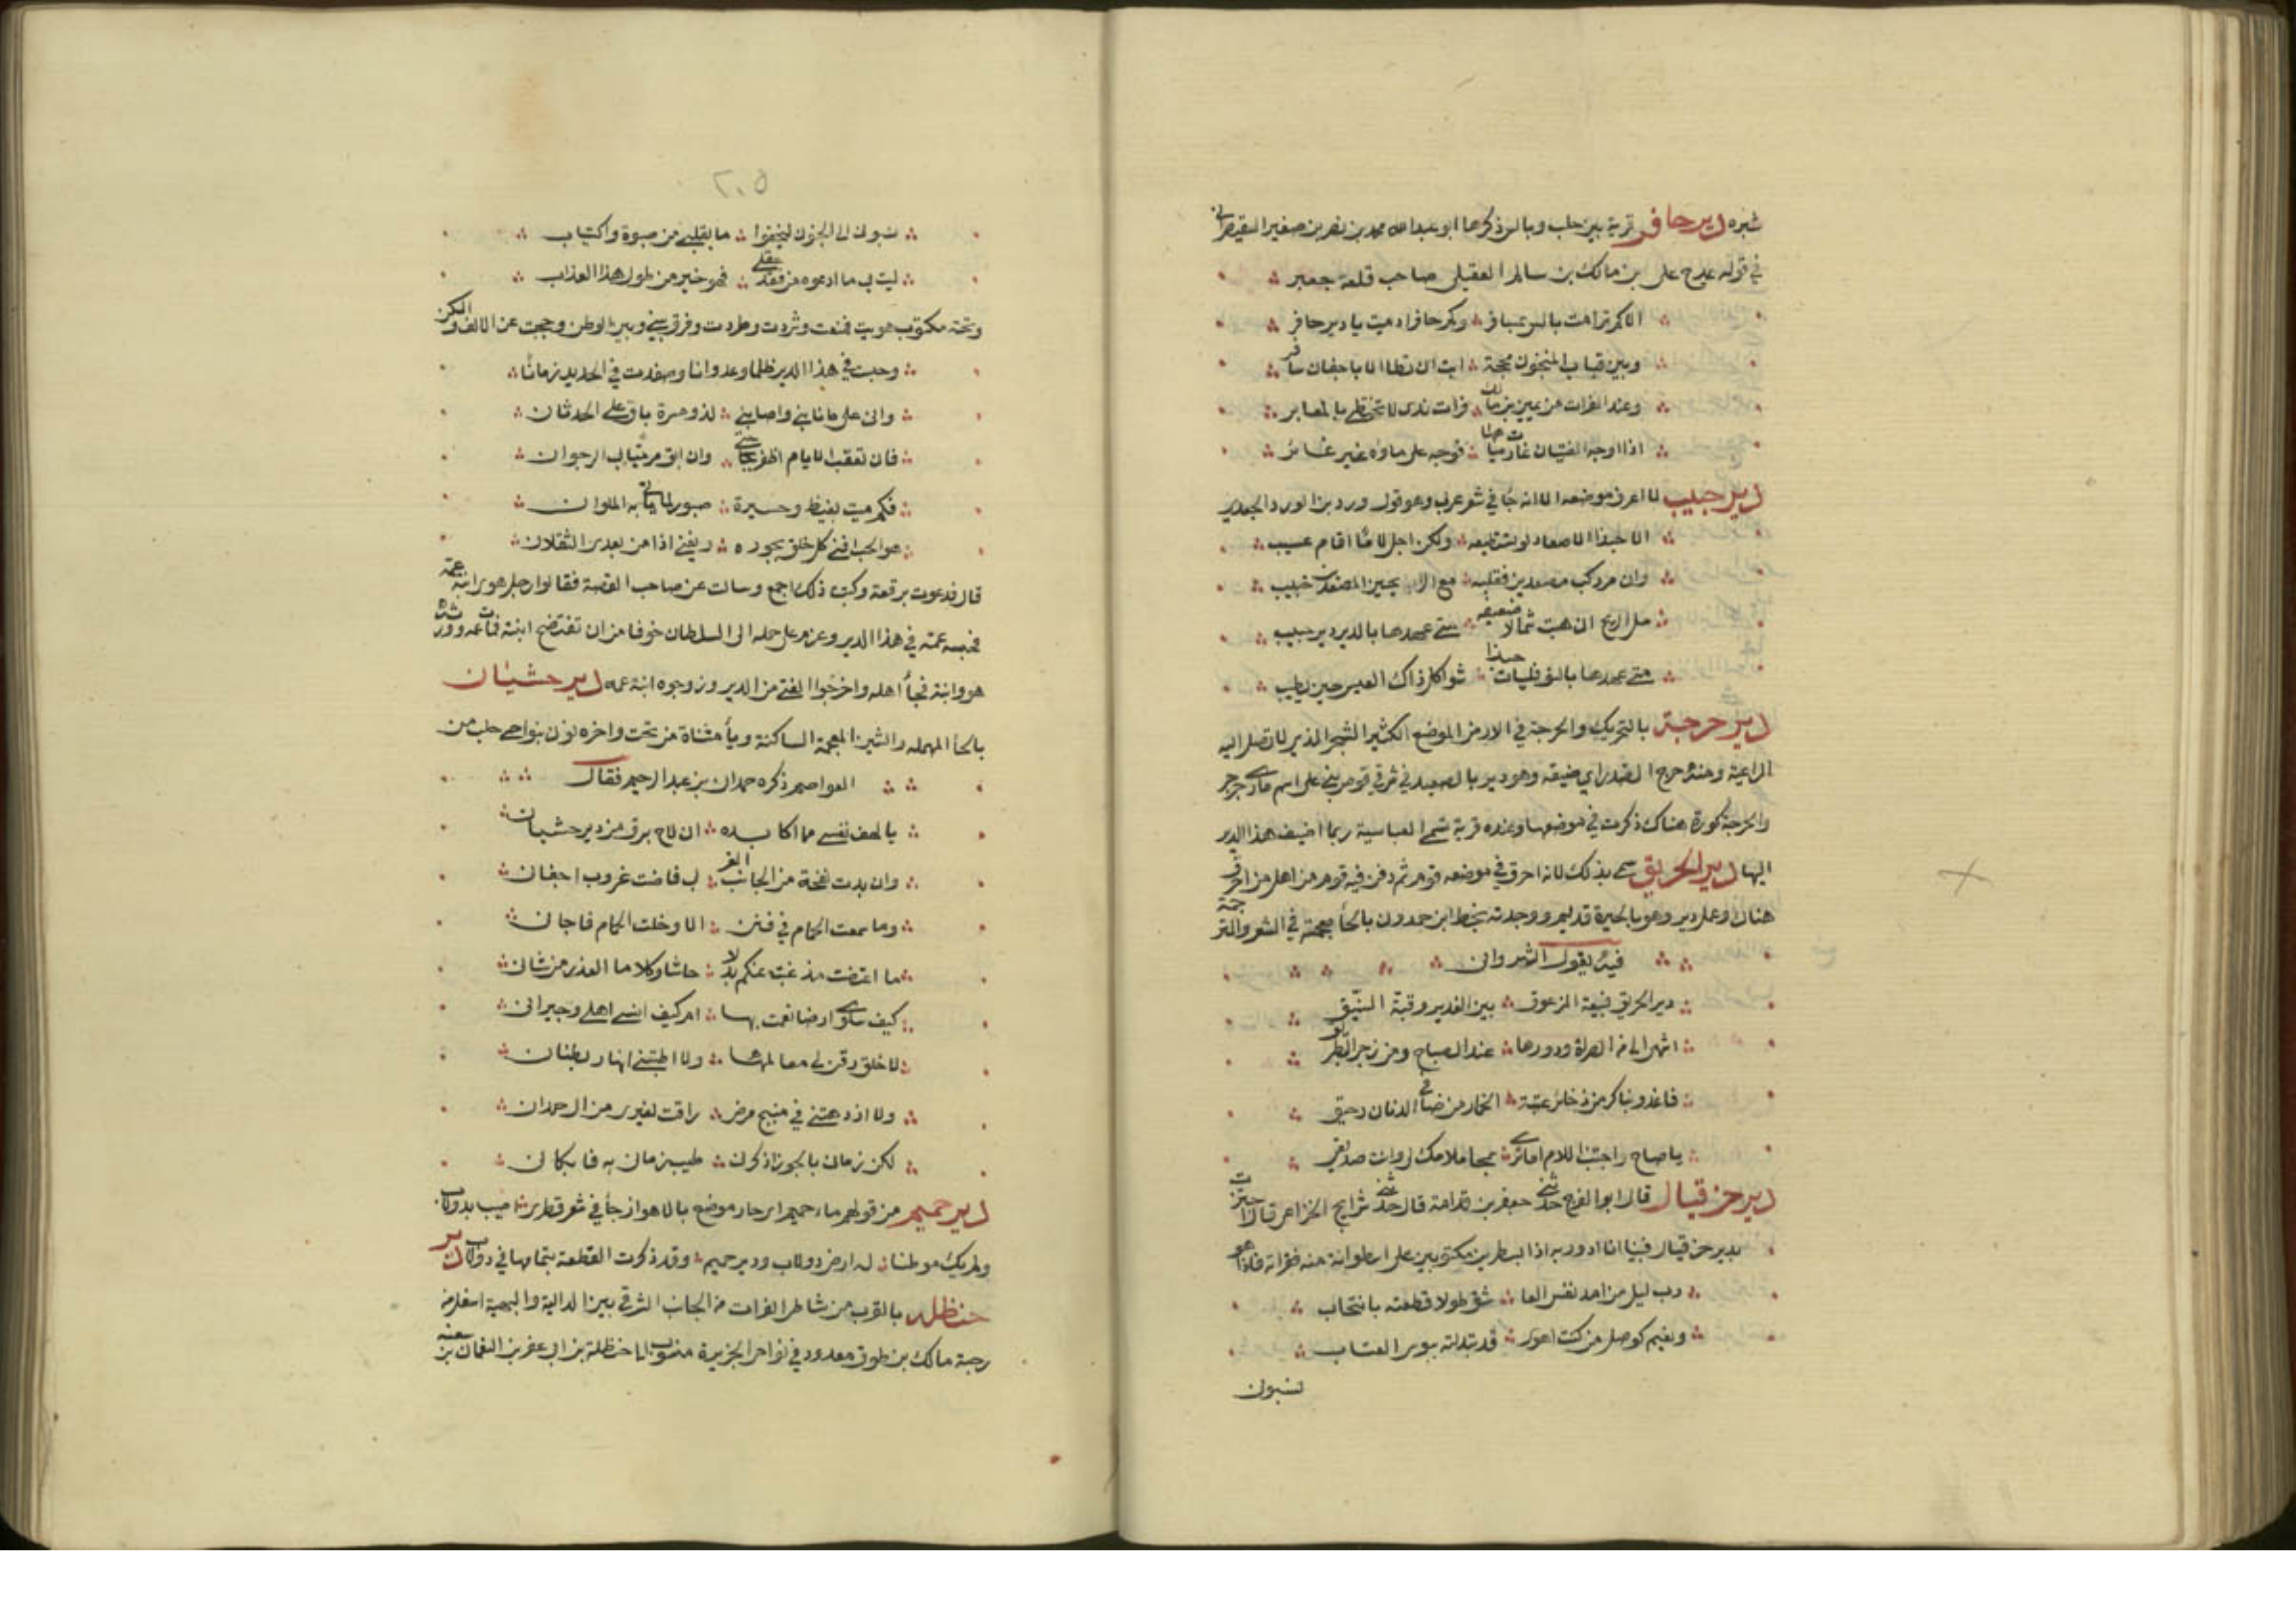 شبره دير حافر قرية بين حلب وبالس ذكرها ابو عبدالله محمد بن نصر بن صغير القيصراني
في قوله يمدح علي بن مالك بن سالم العقيلي صاحب قلعة جعبر
الا كم ترامت بالس بمسافر وكم حافر ادميت يا دير حافر
وبين قباب المنجنون محجة ابت ان تطا الا باجفان سافر
وعند الفرات من يمين بن مالك فرات ندى لا تختطى بالمعابر
اذا اوجه الفتيان غارت مياهها فوجه علي ماؤه غير غائر
دير حبيب لا اعرف موضعه الا انه جا في شعر عرب وهو قول ورد بن الورد الجعدي
الا حبذا الاصعاد لو تستطيعه ولكن اجل لا ما اقام عسيب
وان مر ركب مصعدين فقلبه مع الرايحين المصعدين خبيب
سل الريح ان هبت شمالا ضعيفة متى عهدها بالدير دير حبيب
متى عهدها بالنوفليات حبذا شواكل ذاك العيش حين يطيب
دير حرجة بالتحريك والحرجة في الارض الموضع الكثير الشجر الذي لا تصل اليه
الراعية ومنه حرج الصدر اي ضيقه وهو دير بالصعيد في شرقي قوص بني على اسم مارى جرجس
والحرجة كورة هناك ذكرت في موضعها وعنده قرية تسمى العباسية ربما اضيف هذا الدير
اليها دير الحريق سمي بذلك لانه احرق في موضعه قوم ثم دفن فيه قوم من اهل من احرق
هناك وعمل دير وهو بالحيرة قديم ووجدته بخط ابن حمدون بالخا معجمة في الشعر والترجمة
فيه يقول الثرواني
دير الحريق فبيعة المزعوق بين الغدير وقبة السنيق
اشهى الي من الصراة ودورها عند الصباح ومن رحى البطريق
فاغدو نباكر من ذخائر عتبة الخمار من صافي الدنان رحيق
يا صاح واجتنب الملام اما ترى سمجا ملامك لي وانت صديقي
دير حزقيال قال ابو الفرج حدثني جعفر بن قدامة قال حدثني شرايح الخزاعي قال اجتزت
بدير حزقيال فبينا انا ادور به اذا بسطرين مكتوبين على اسطوانة منه فقراته فاذا هو
رب ليل من امد نفس العا شق طولا قطعته بانتحاب
ونعيم كوصل من كنت اهوى قد تبدلته ببوس العتاب
نسبون
٢٠٥
نسبوني الى الجنون ليخفوا ما بقلبي من صبوة واكتياب
ليت بي ما ادعوه من فقد عقلي فهو خير من طول هذا العذاب
وتحته مكتوب هويت فمنعت وشردت وطردت وفرق بيني وبين الوطن وحجبت عن الالف والسكن
وحبست في هذا الدير ظلما وعدوانا وصفدت في الحديد زمانا
واني على ما نابني واصابني لذو مرة باق على الحدثان
فان تعقب الايام اظفر بحاجتي وان ابق مرميا بي الرجوان
فكم ميت بغيظ وحسرة صبور لما ياتي به الملوان
هو الحب افنى كل خلق بجوره ويفني اذا من بعدي الثقلان
قال فدعوت برقعة وكتبت ذلك اجمع وسالت عن صاحب القصة فقالوا رجل هوي ابنة عمه
فحبسه عمه في هذا الدير وعزم على حمله الى السلطان خوفا من ان تفتضح ابنته فمات عمه وورثه
هو وابنته فجاأ اهله واخرجوا الفتى من الدير وزوجوه ابنة عمه دير حشيان
بالحا المهمله والشين المعجمة الساكنة ويأ مثناة من تحت واخره نون بنواحي حلب من
العواصم ذكره حمدان بن عبد الرحيم فقال
يا لهف نفسي مما اكابده ان لاح برق من دير حشيان
وان بدت نفحة من الجانب الغر بي فاضت غروب اجفان
وما سمعت الحمام في فنن الا وخلت الحمام فاجان
ما اعتضت مذ غبت عنكم بدلا حاشا وكلا ما الغدر من شان
كيف سلوى ارضا نعمت بها ام كيف انسى اهلي وجيراني
لا خلق رقن لي معالمها ولا اطبتني انهار بطنان
ولا ازدهتني في منبج فرص راقت لغيري من ال حمدان
لكن زمان بالجزر اذكرن طيب زمان به فابكان
دير حميم من قولهم ماء حميم اي حار موضع بالاهواز جأ في شعر قطري اصيب بدولاب
ولم يك موطنا له ارض دولاب ودير حميم وقد ذكرت القطعة بتمامها في دولاب دير
حنظله بالقرب من شاطي الفرات من الجانب الشرقي بين الدالية والبهسنة اسفل من
رحبة مالك بن طوق معدود في نواحي الجزيرة منسوب الى حنظلة بن ابي عفر بن النعمان بن